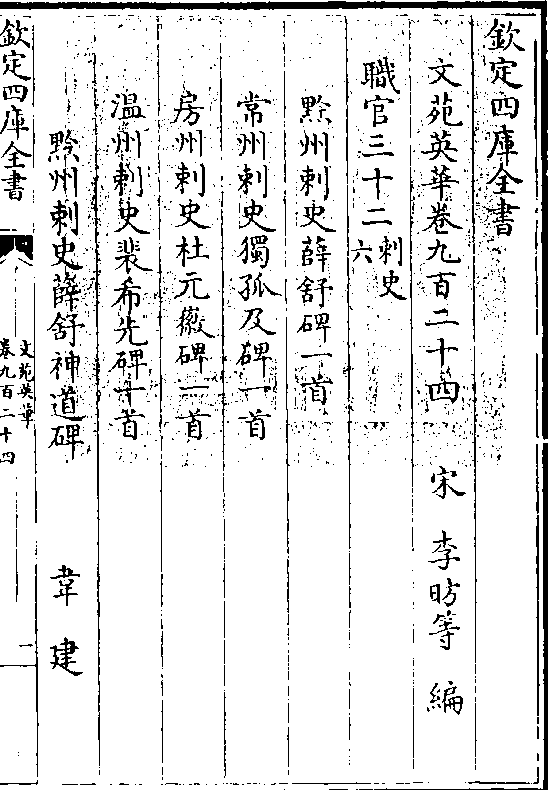 欽定四庫全書
文苑英華卷九百二十四
宋 李昉等 編
職官三十二 刺史六
黔州刺史薛舒碑一首
常州刺史獨孤及碑一首
房州刺史杜元徽碑一首
温州刺史裴希先碑一首
黔州刺史薛舒神道碑 韋建
欽定四庫全書
文苑英華
卷九百二十四
一